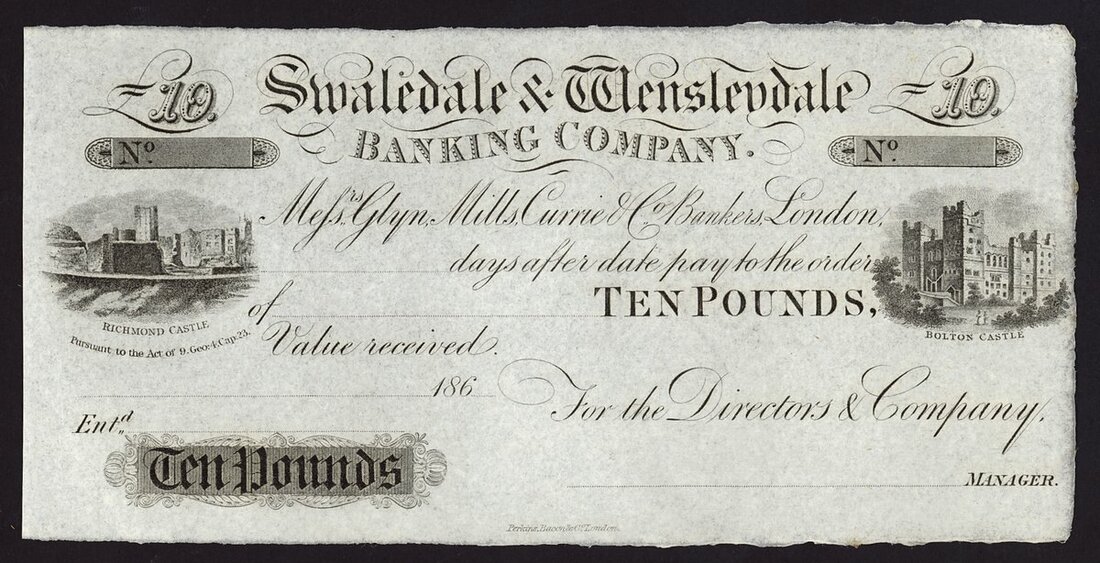 £10. Swaledale & Wensleydale £10.
BANKING COMPANY.
No. No.
Messrs. Glyn, Mills, Currie & Co. Bankers, London,
days after date pay to the order
of TEN POUNDS,
RICHMOND CASTLE
Pursuant to the Act of 9. Geo: 4. Cap: 23.
BOLTON CASTLE
Value received.
186
For the Directors & Company,
Entd.
Ten Pounds
MANAGER.
Perkins, Bacon & Co. London.